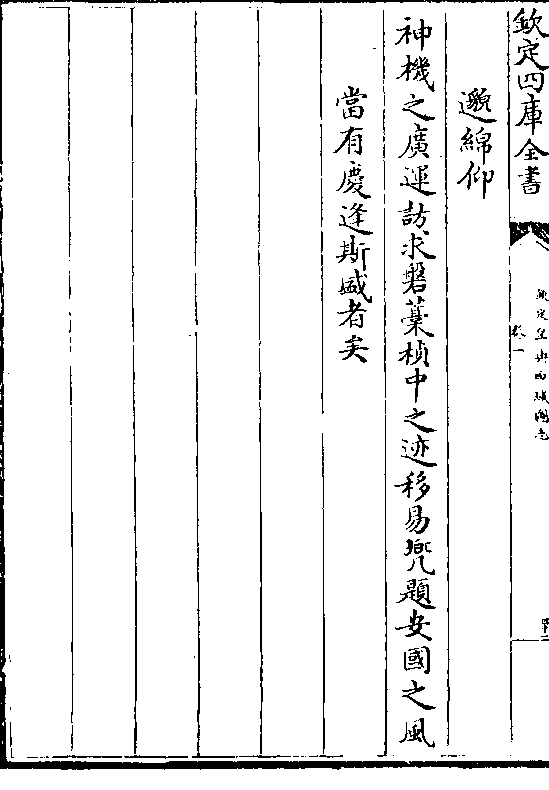 欽定四庫全書
欽定皇輿西域圖志
卷一
邈綿仰
神機之廣運訪求磐藁楨中之迹移易兜題安國之風
當有慶逢斯盛者矣